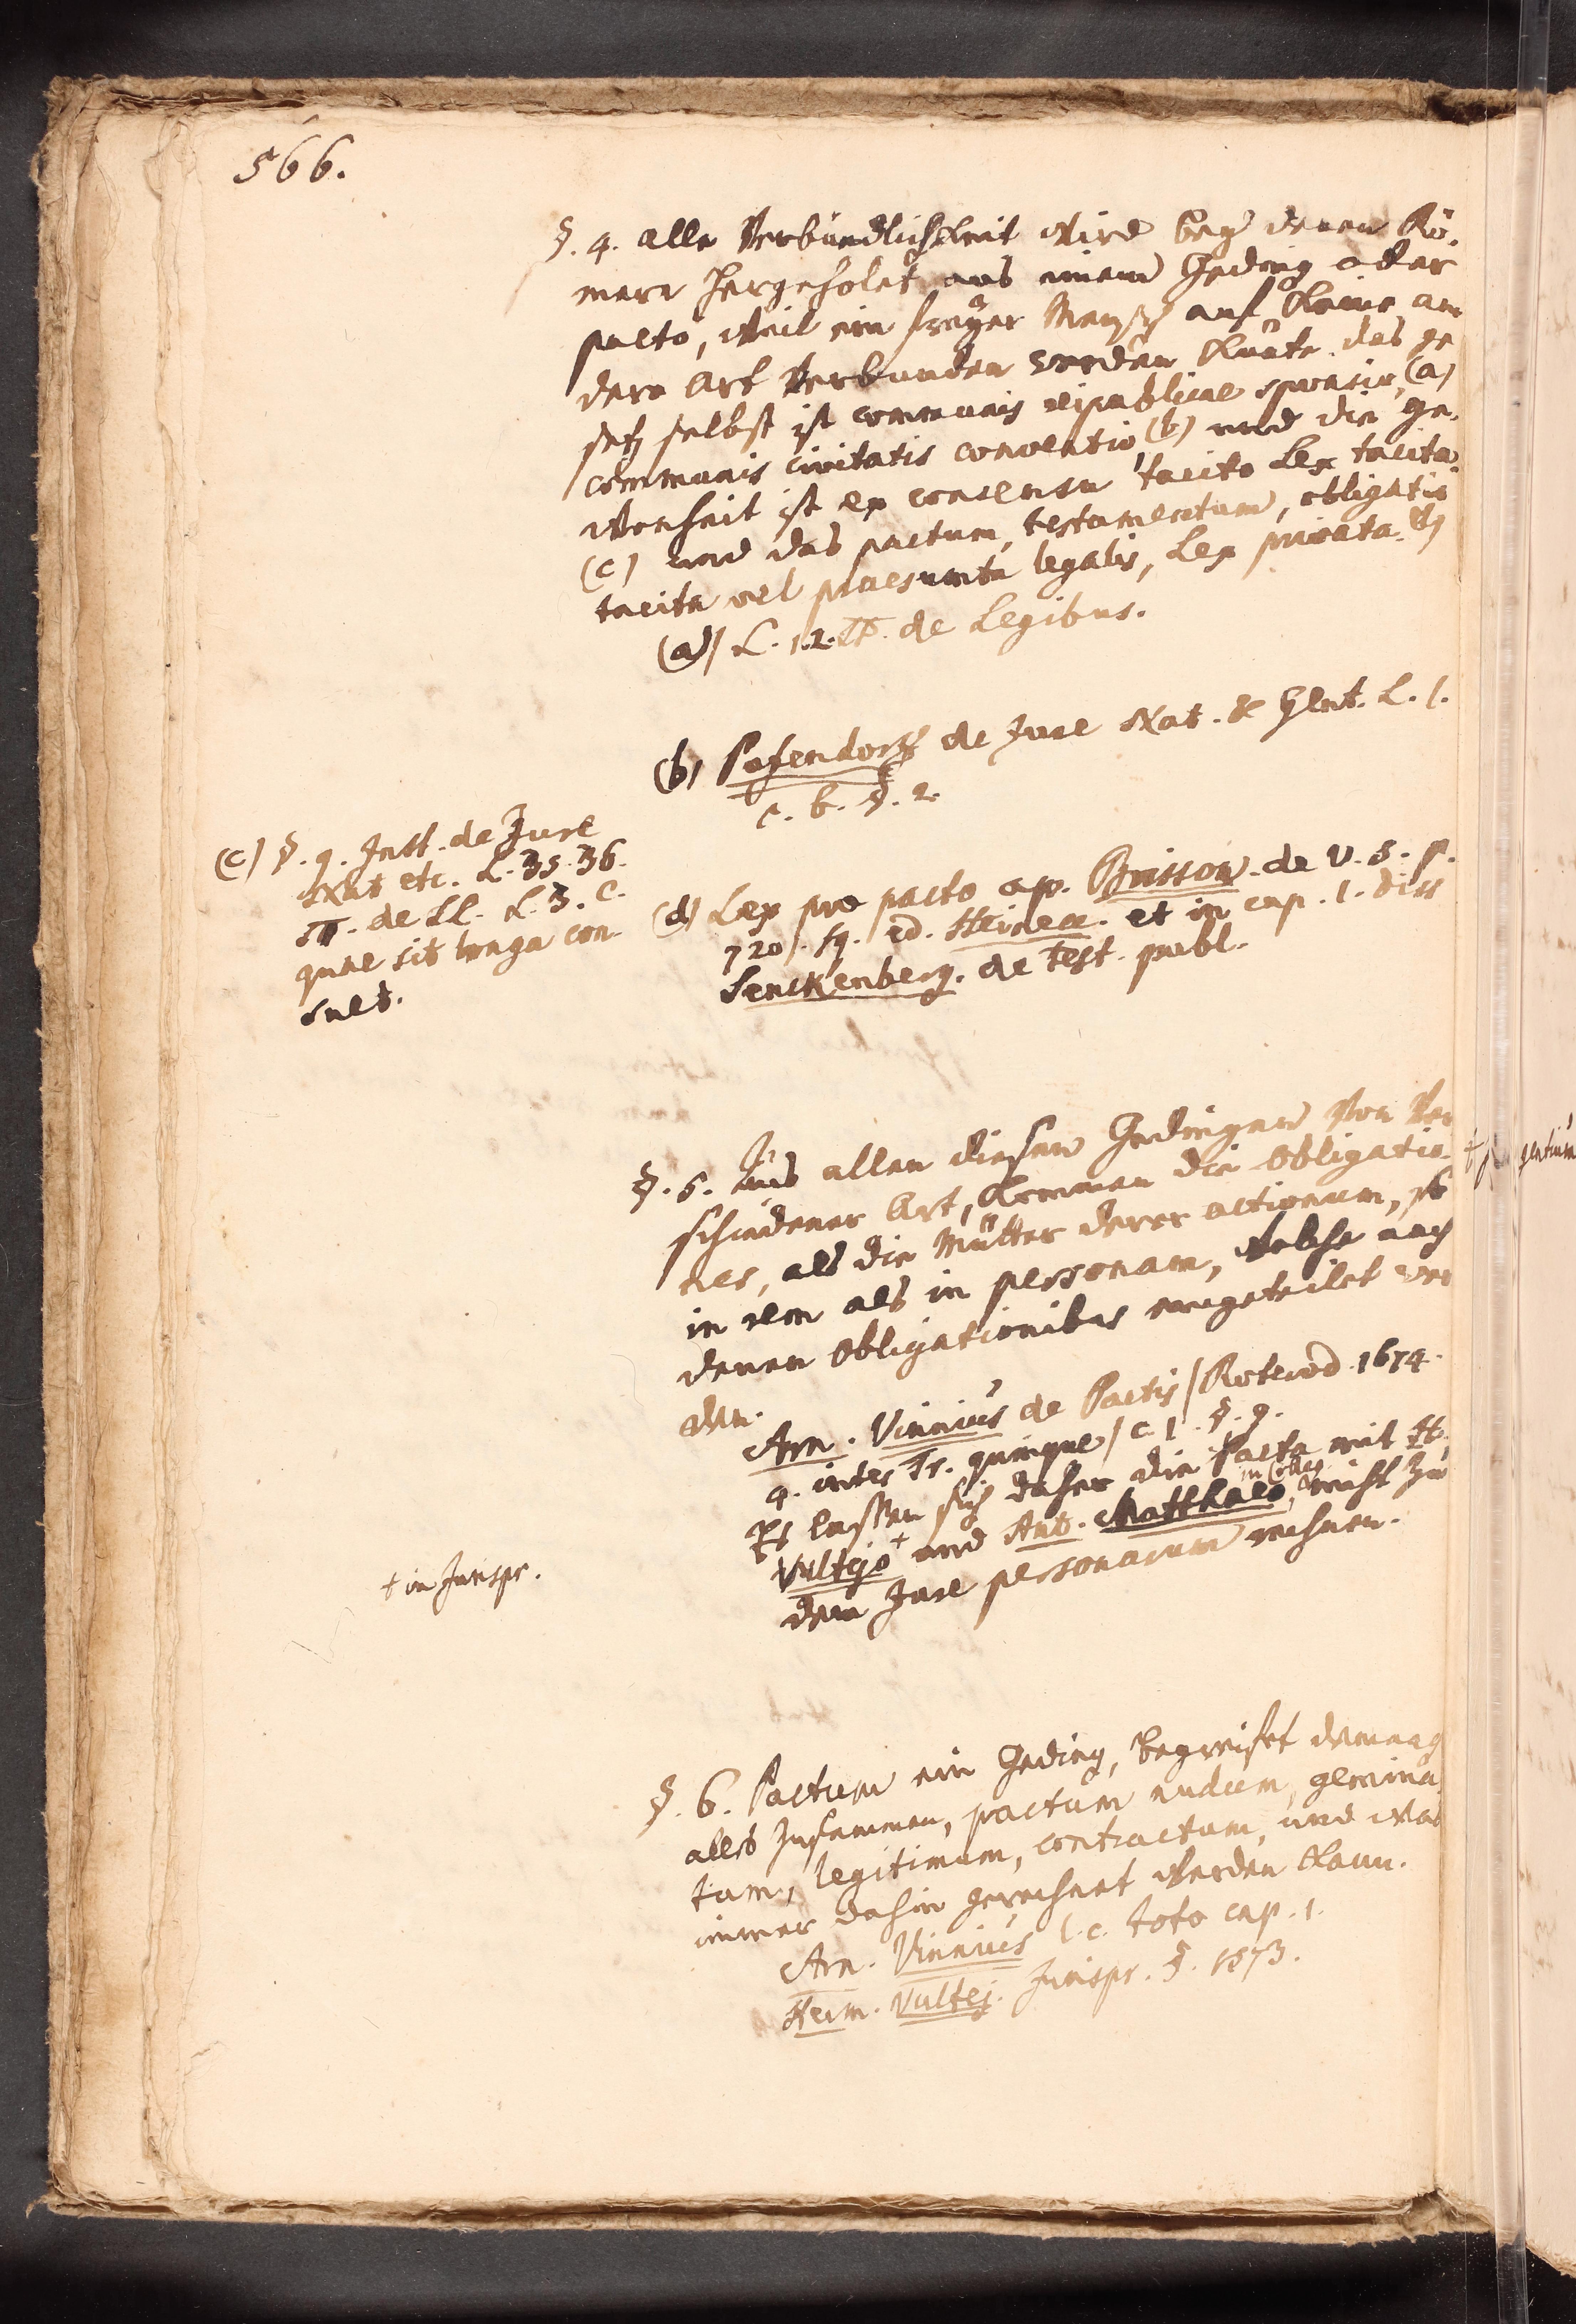 566.
§. 4. alle Verbündlichkeit wird bey denen Rö-
mern hergeholet aus einem Geding oder
pacto, weil ein freyer Mensch auf keine an
dere Art verbunden werden kunte. das ge
setz selbst ist communis reipublicae sponsio, (a)
communis civitatis conventio (b) und die ge-
wonheit ist ex consensu tacito Lex tacita
(c) und das pactum, testamentum, obligatio
tacita vel praesumta legalis, Lex privata. (d)
(a) L. 1. 2. de Legibus.
(b) Pufendorff de Jure Nat. & Gent. L. 1.
c. 6. §. 2.
(c) §. 9. Inst. de Jure
Nat etc. L. 35. 36.
π. de LL. L. 3. C.
quae sit longa con-
suet.
(d) Lex pro pacto ap. Brisson. de V. S. p.
720. sq. ed. Heinecc. et in cap. 1. diss
Senckenberg. de Test. publ.
§. 5. Aus allen diesen Gedingen von ver
schiedener Art, kommen die obligatio-
nes, als die Mütter derer actionum, so
in rem als in personam, welche nach
denen obligationibus eingeteilet wer
den.
Arn. Vinnius de Pactis / Roterod. 1674.
4. inter Tr. quinque / c. 1. §. 9.
Es lassen sich daher die Pacta mit H.
Vultejo + und Ant. Matthaeo, in Colleg. nicht zu
dem Jure personarum rechnen.
+ in Jurispr.
§. 6. Pactum ein Geding, begreifet demnach
alles zusammen, pactum nudum, gemina
tum, legitimum, contractum, und was
immer dahin gerechnet werden kann.
Arn. Vinnius l. c. toto cap. 1.
Herm. Vultej. Jurispr. §. 1573.
gentium